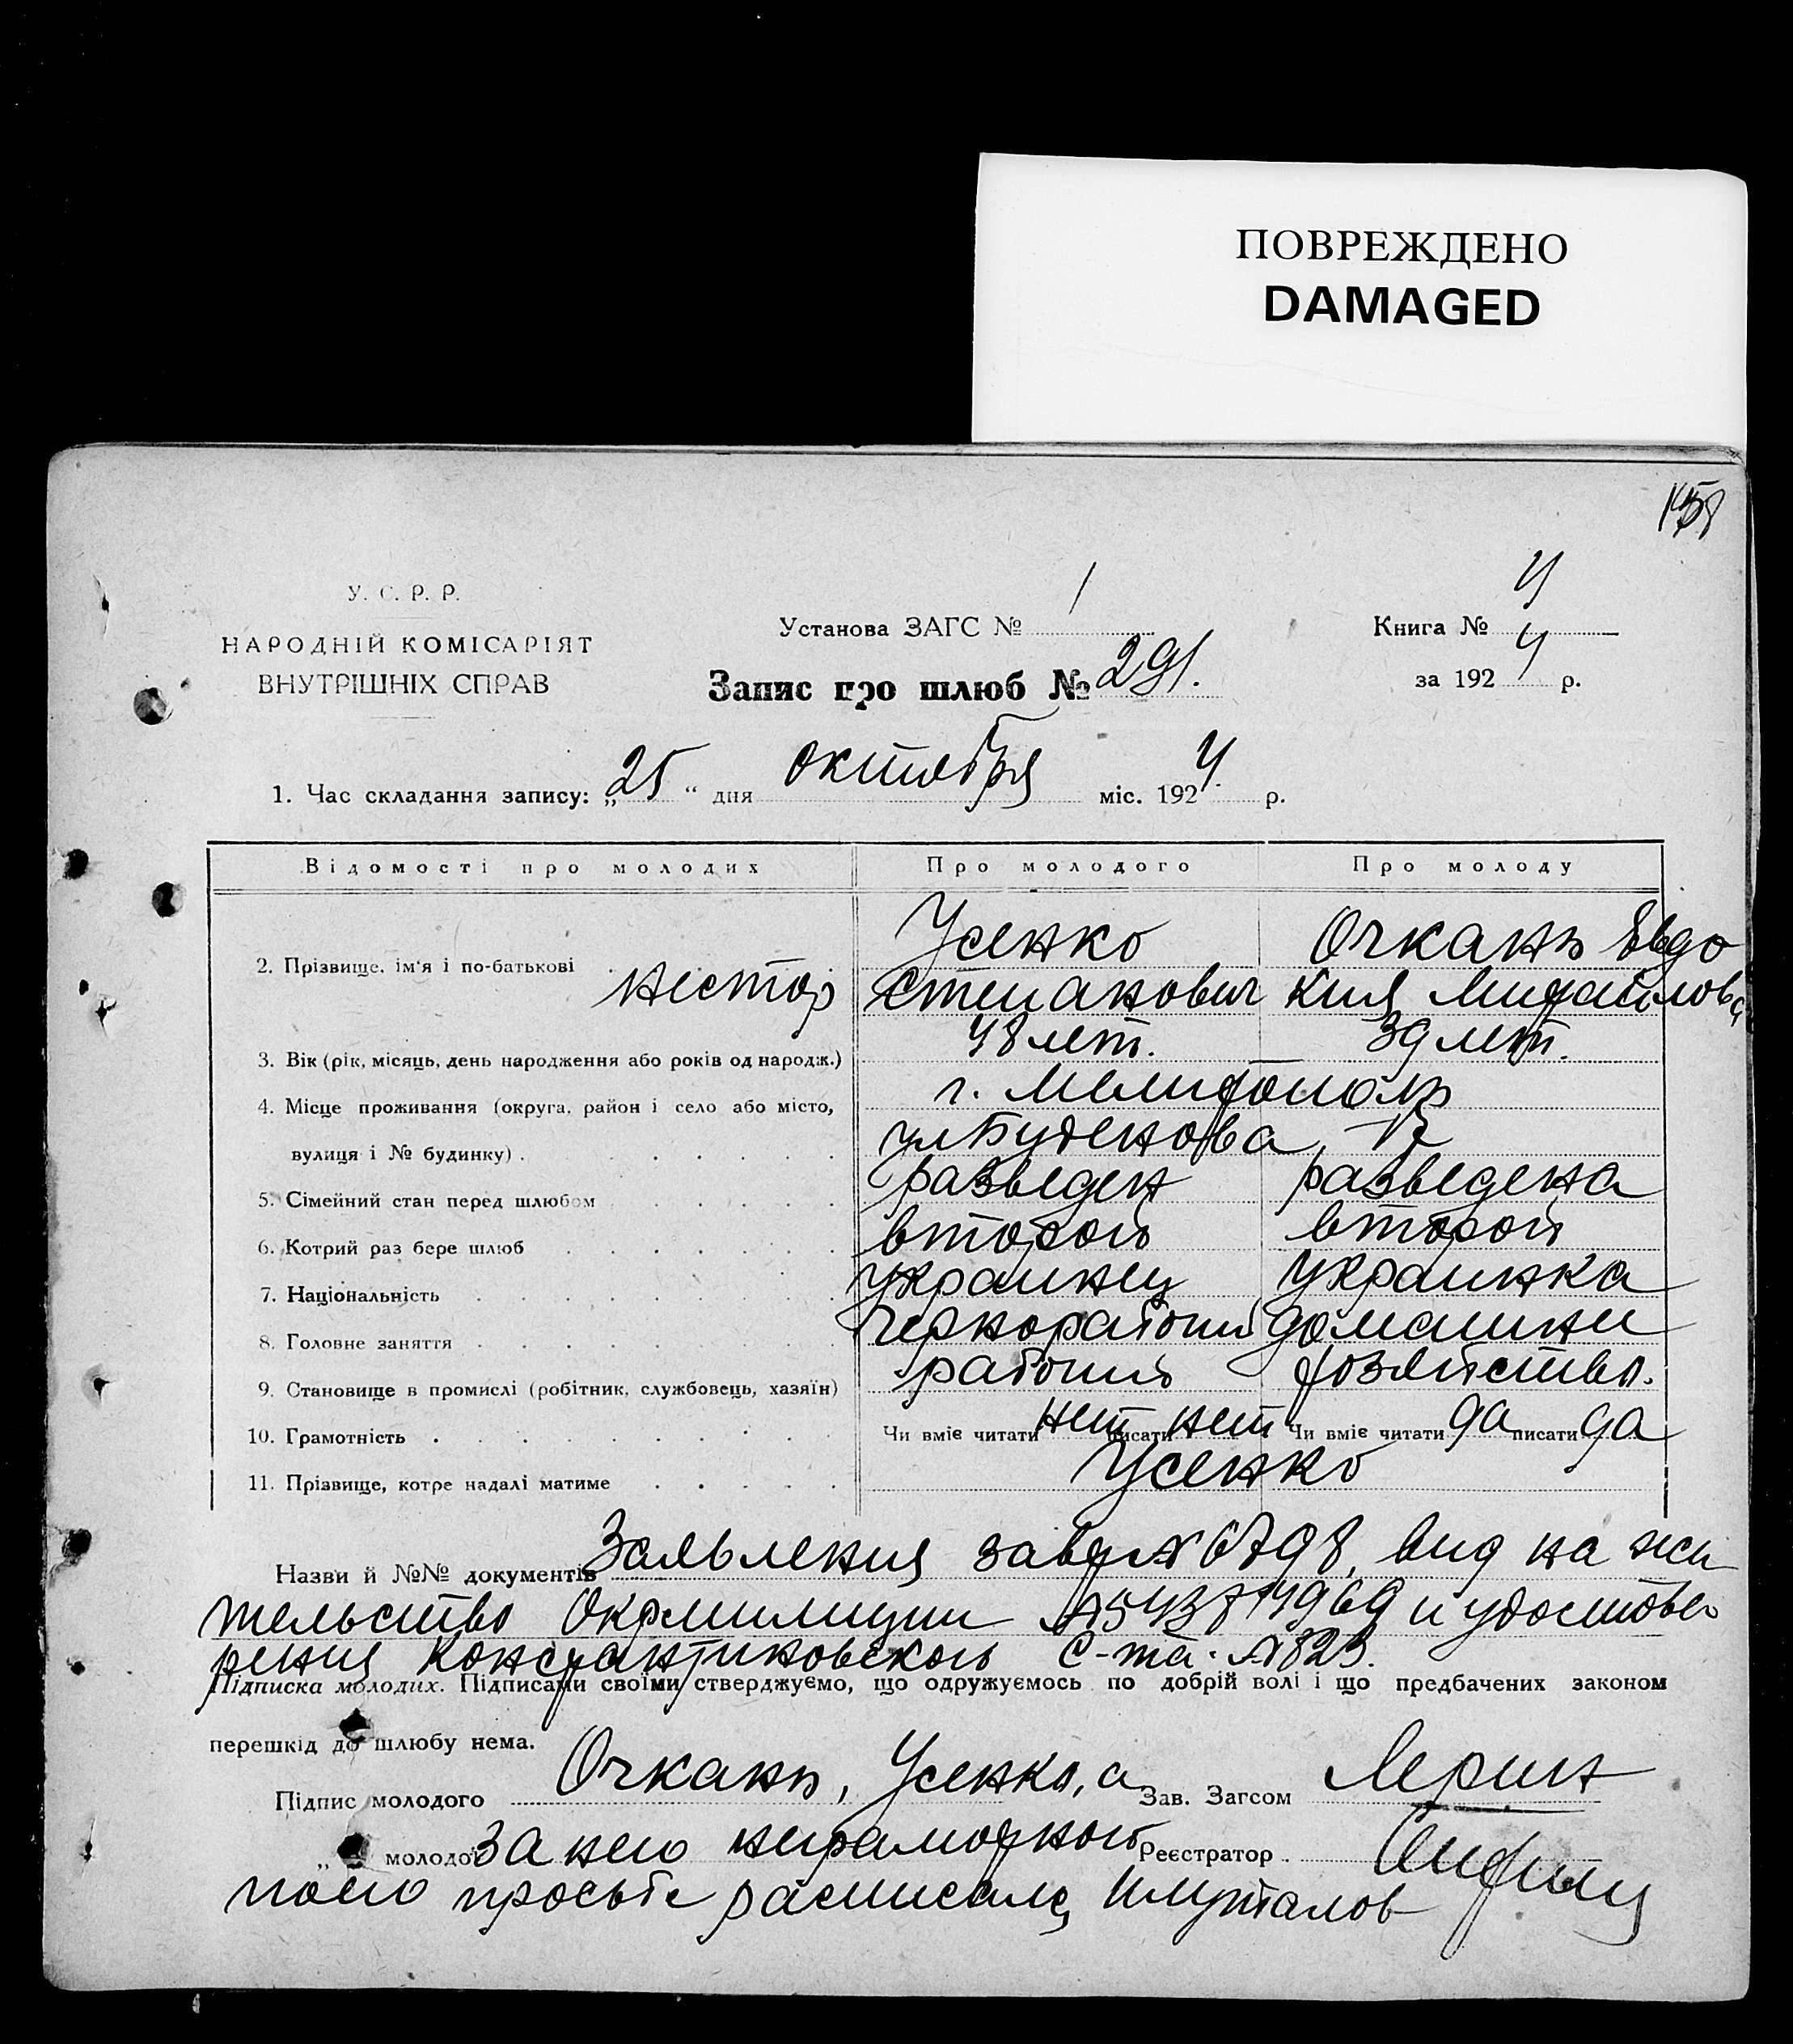 ПОВРЕЖДЕНО
DAMAGED
У. С. Р. Р.
НАРОДНІЙ КОМІСАРІЯТ
ВНУТРІШНІХ СПРАВ
Установа ЗАГС № 1
Книга № 4
Запис про шлюб № 291.
за 1924 р.
1. Час складання запису: „25“ дня октября міс. 1924 р.
Відомості про молодих Про молодого Про молоду
Усенко Очкань Евдо
2. Прізвище, ім'я і по-батькові Нестор Степанович кия Михайлова
3. Вік (рік, місяць, день народження або років од народж.) 48 лет. 39 лет.
4. Місце проживання (округа, район і село або місто, г. Мелитополь
вулиця і № будинку) . ул Буденова, 17
5. Сімейний стан перед шлюбом разведен разведена
6. Котрий раз бере шлюб второй второй
7. Національність украинец украинка
8. Головне заняття чернорабочий домашнее
9. Становище в промислі (робітник, службовець, хазяїн) рабочий хозяйство.
10. Грамотність Чи вміє читати нет писати нет Чи вміє читати да писати да
11. Прізвище, котре надалі матиме Усенко
Назви й №№ документів Заявления вид на жи
тельство Окрмилиции и удостове
рения Константиновского с-та № 823.
Підписка молодих. Підписами своїми стверджуємо, що одружуємось по добрій волі і що предбачених законом
перешкід до шлюбу нема.
Підпис молодого Очкань, Усенко, а Зав. Загсом
„ молодої за него неграмотного Реєстратор
по его просьбе расписался